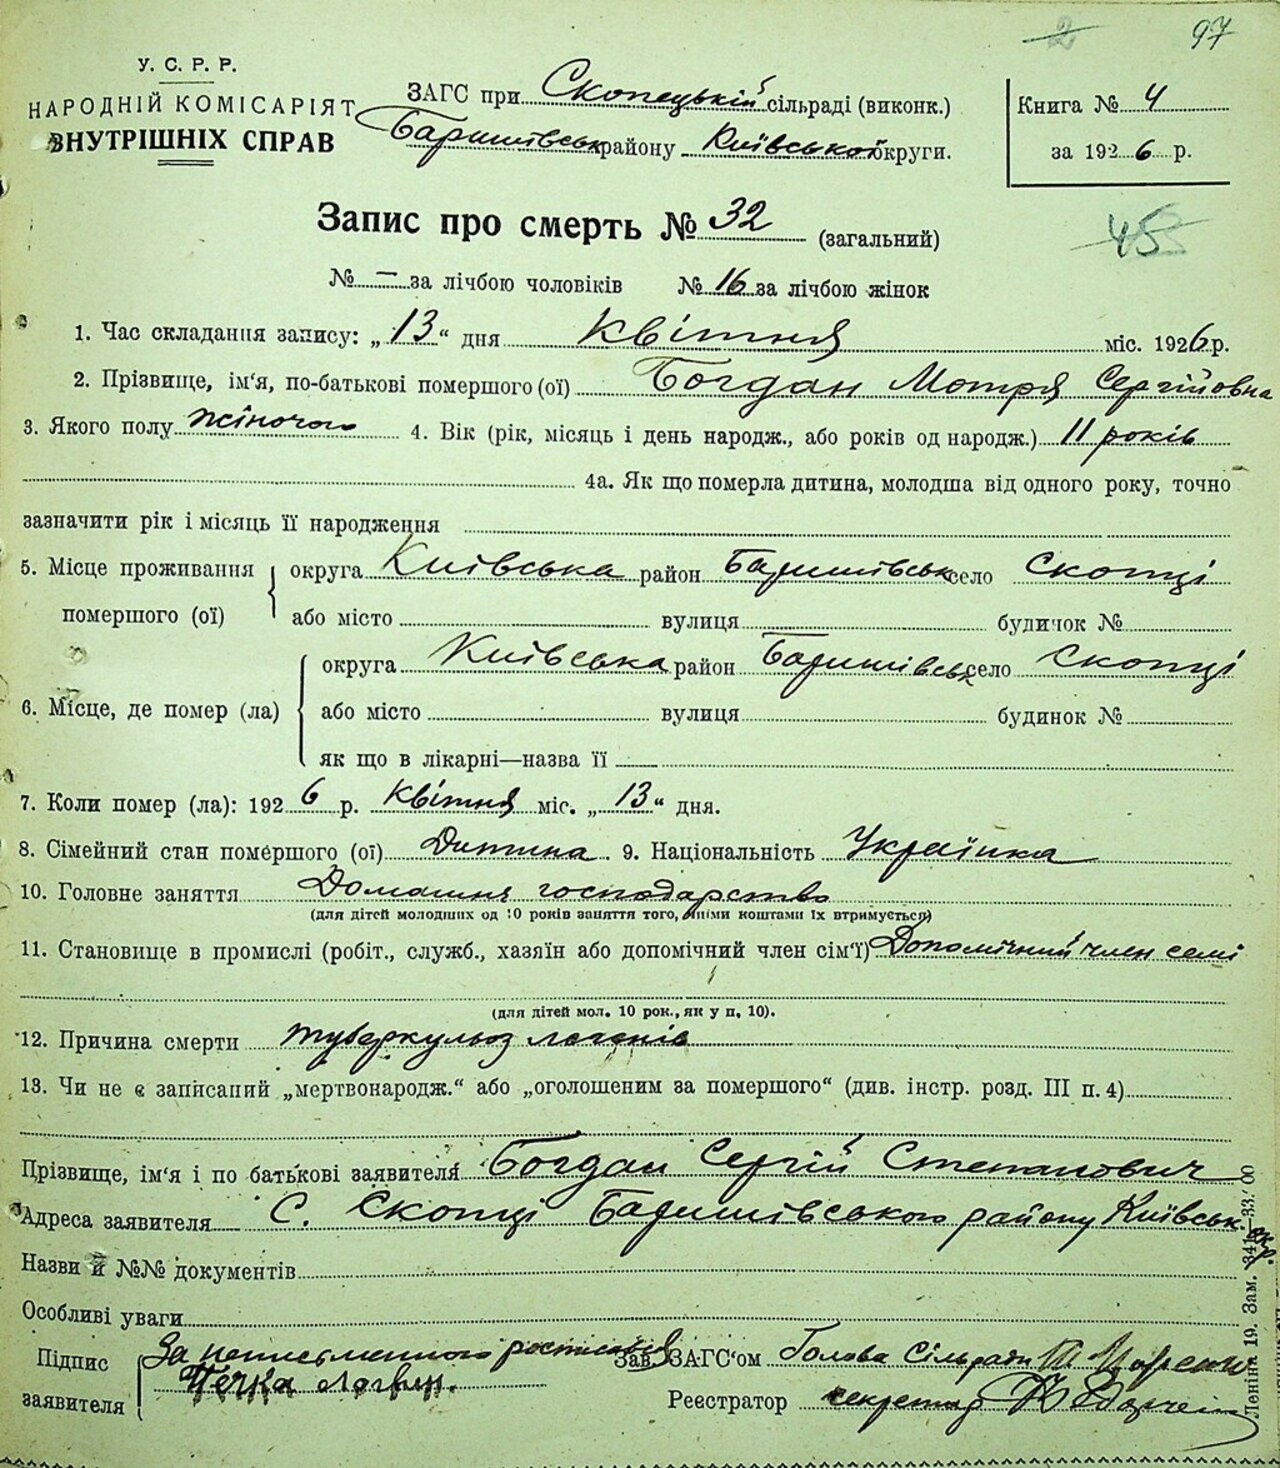 2 97
У. С. Р. Р.
НАРОДНІЙ КОМІСАРІЯТ
ВНУТРІШНІХ СПРАВ
ЗАГС при Скопецькій сільраді (виконк.)
Баришівськ району Київської округи.
Книга № 4
за 1926 р.
Запис про смерть № 32 (загальний)
45
№ — за лічбою чоловіків № 16 за лічбою жінок
1. Час складання запису: „13“ дня Квітня міс. 1926 р.
2. Прізвище, ім‘я, по-батькові помершого (ої) Богдан Мотря Сергійовна
3. Якого полу жіночого 4. Вік (рік, місяць і день народж., або років од народж.) 11 років
4а. Як що померла дитина, молодша від одного року, точно
зазначити рік і місяць її народження
5. Місце проживання помершого (ої) округа Київська район Баришівськ село Скопці
або місто вулиця будинок №
6. Місце, де помер (ла) округа Київська район Баришівськ село Скопці
або місто вулиця будинок №
як що в лікарні—назва її
7. Коли помер (ла): 1926 р. Квітня міс. „13“ дня.
8. Сімейний стан помершого (ої) Дитина 9. Національність Українка
10. Головне заняття Домашня господарство
(для дітей молодших од 10 років заняття того, чиїми коштами їх втримується)
11. Становище в промислі (робіт., служб., хазяїн або допомічний член сім‘ї) Допомічний член семі
(для дітей мол. 10 рок., як у п. 10).
12. Причина смерти туберкульоз легенів
13. Чи не є записаний „мертвонародж.“ або „оголошеним за помершого“ (див. інстр. розд. III п. 4)
Прізвище, ім‘я і по батькові заявителя Богдан Сергій Степанович
Адреса заявителя С. Скопці Баришівського району Київськ. окр.
Назви й №№ документів
Особливі уваги
Підпис заявителя За неписьменного росписався
Печка Логвин.
Зав. ЗАГС‘ом Голова Сільради
Реєстратор секретар
Леніна 19. Зам.